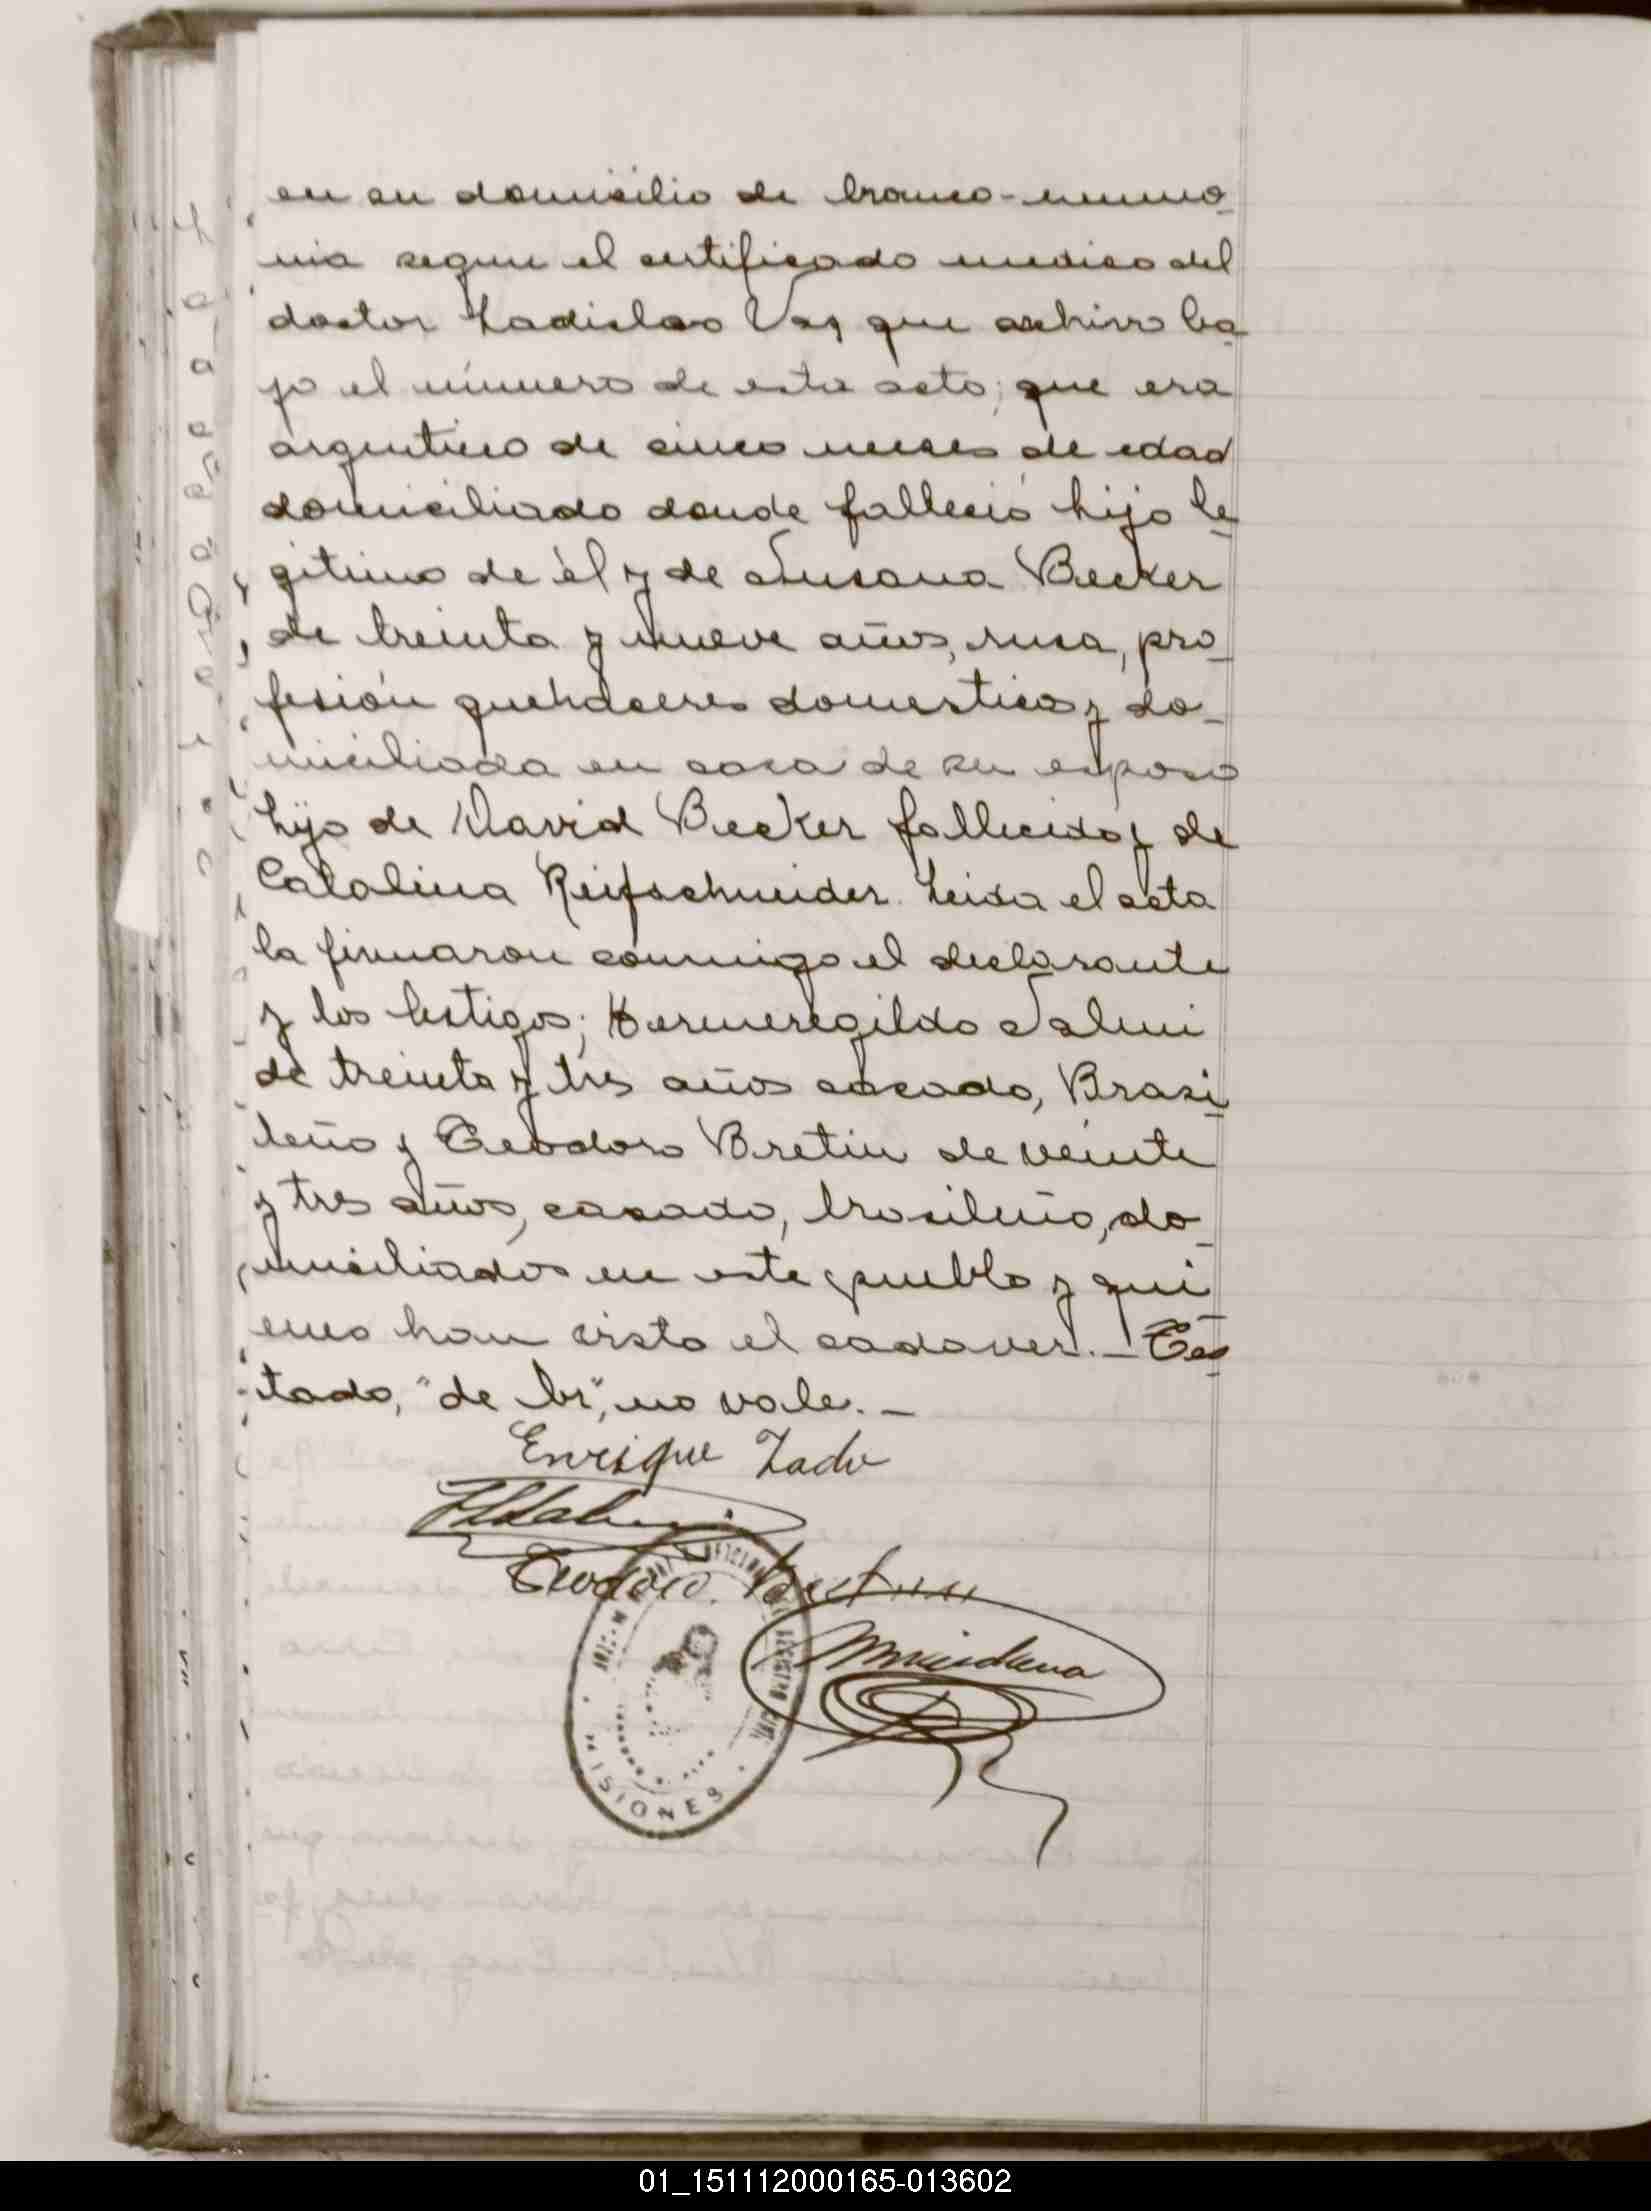 en su domicilio de bronco-neumo-
nia segun el certificado medico del
doctor Ladislao Vaz que archivo ba-
jo el número de esta acta; que era
argentino de cinco meses de edad
domiciliado donde falleció hijo le-
gitimo de él y de Susana Becker
de treinta y nueve años, rusa, pro-
fesión quehaceres domesticos y do-
miciliada en casa de su esposo
hija de David Becker fallecido y de
Catalina Reifschneider. Leida el acta
la firmaron conmigo el declarante
y los testigos; Hermeregildo Salmi
de treinta y tres años casado, Brasi-
leño y Teodoro Bretin de veinte
y tres años, casado, brasileño, do-
miciliados en este pueblo y qui-
enes han visto el cadaver.- Tes-
tado, "de br", no vale.-
Enrique
Teodoro
REGISTRO CIVIL
MISIONES
01_151112000165-013602